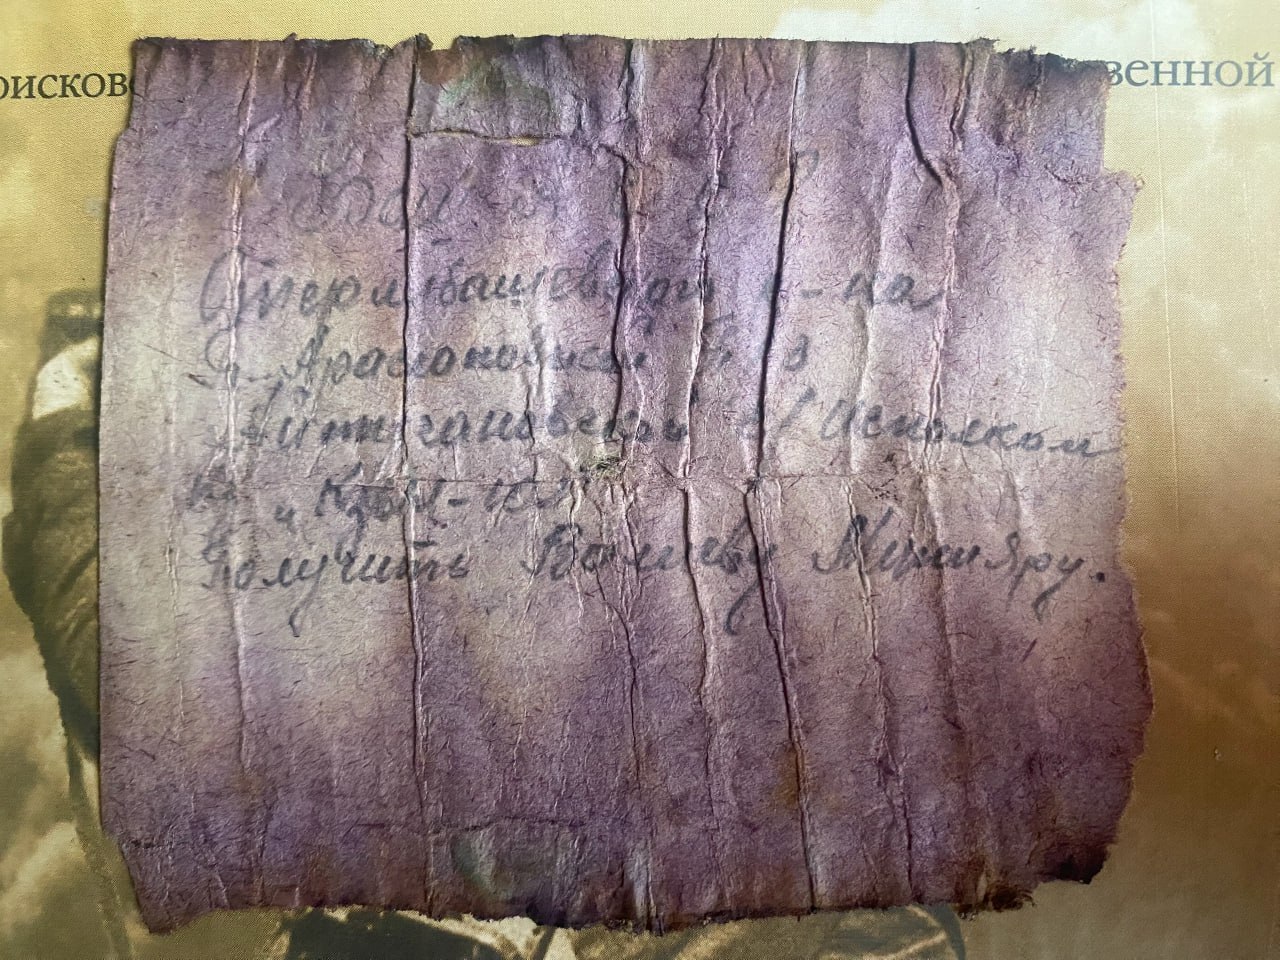 оисков венной
Стерлибашевский р-на
Д. Арслановский
Айтугановский с/исполком
К. „Кзыл-юл"
Получить Валиеву Миннияру.